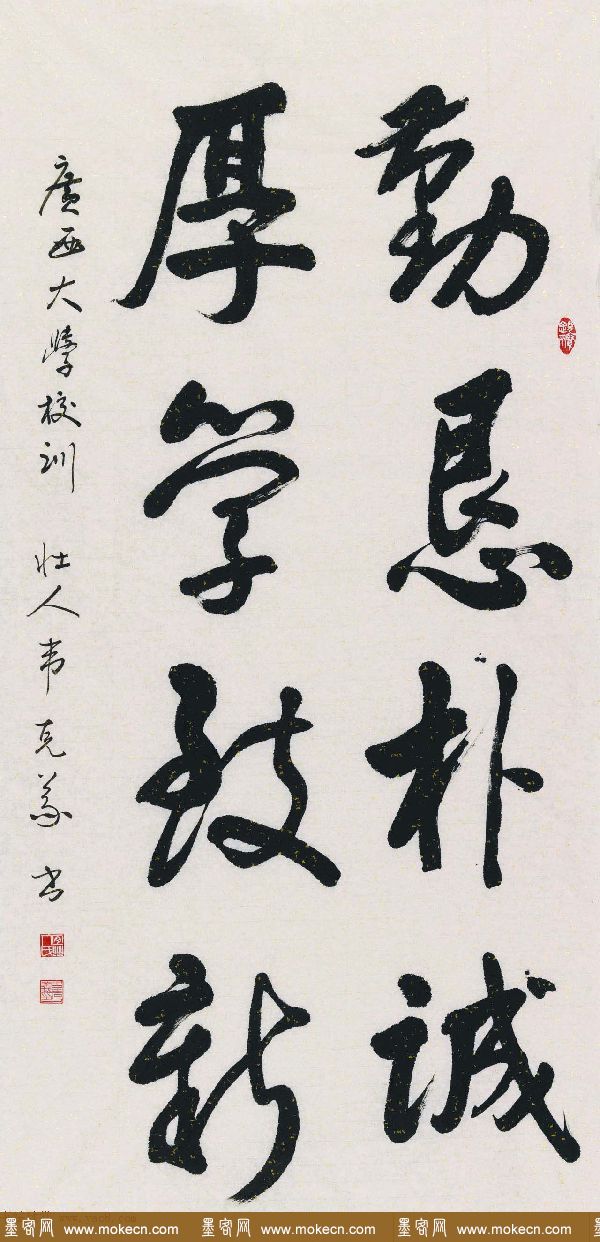 勤恳朴誠
厚学致新
廣西大學校训 壮人韦克義书
墨客网 www.mokecn.com 墨客网 www.mokecn.com 墨客网 www.mokecn.com